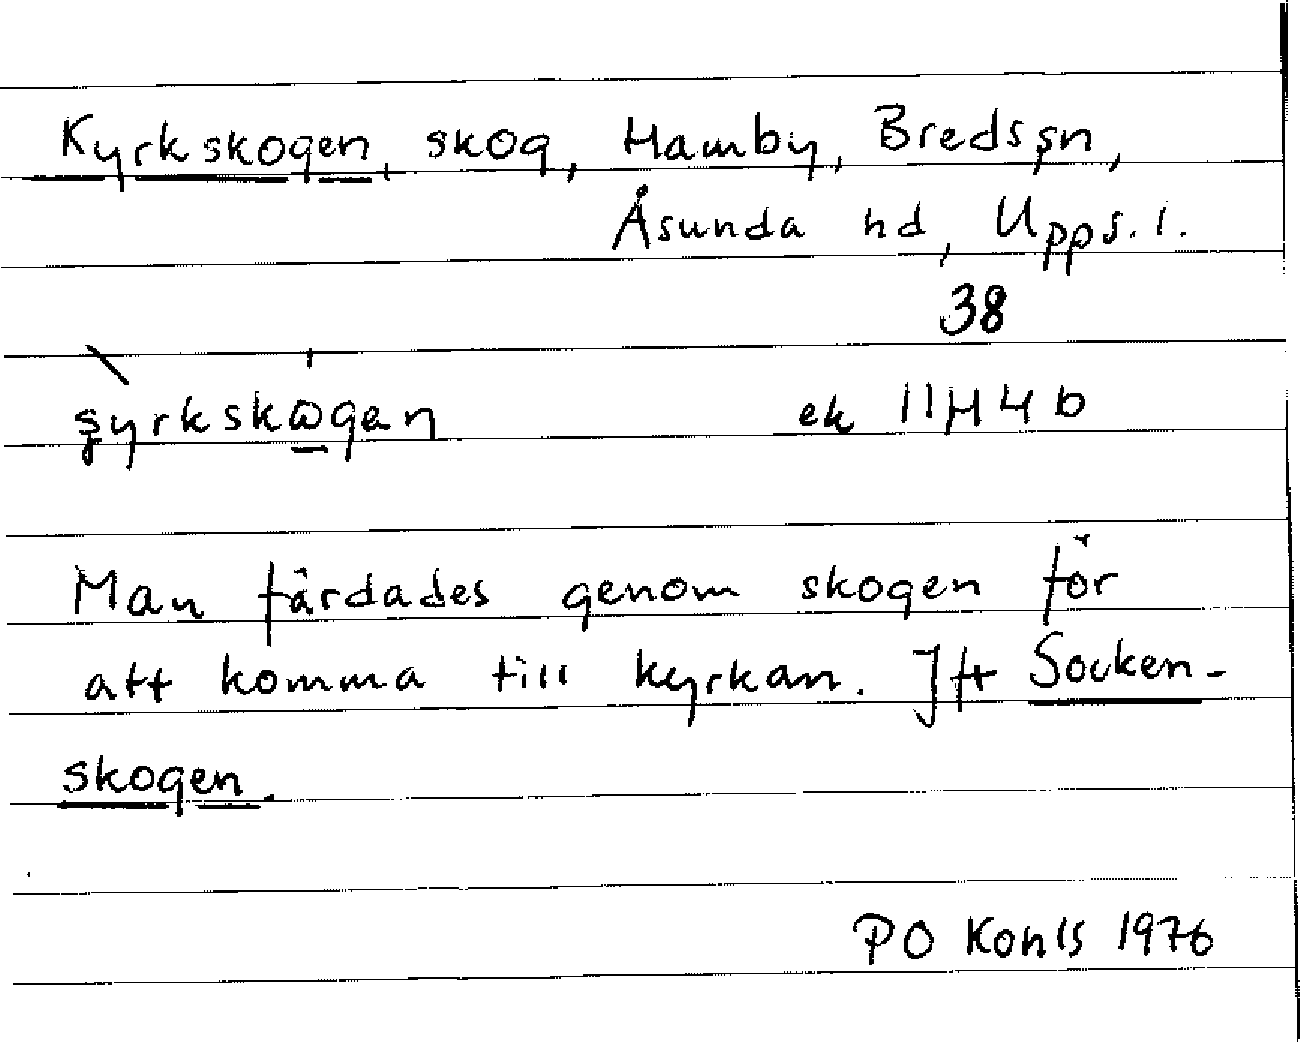 Kyrkskogen, skog, Hamby, Bredssn,
Åsunda hd, Upps. l.
38
şyrkskωgen ek 11H4b
Man färdades genom skogen för
att komma till kyrkan. Jfr Socken-
skogen.
PO Kohls 1976